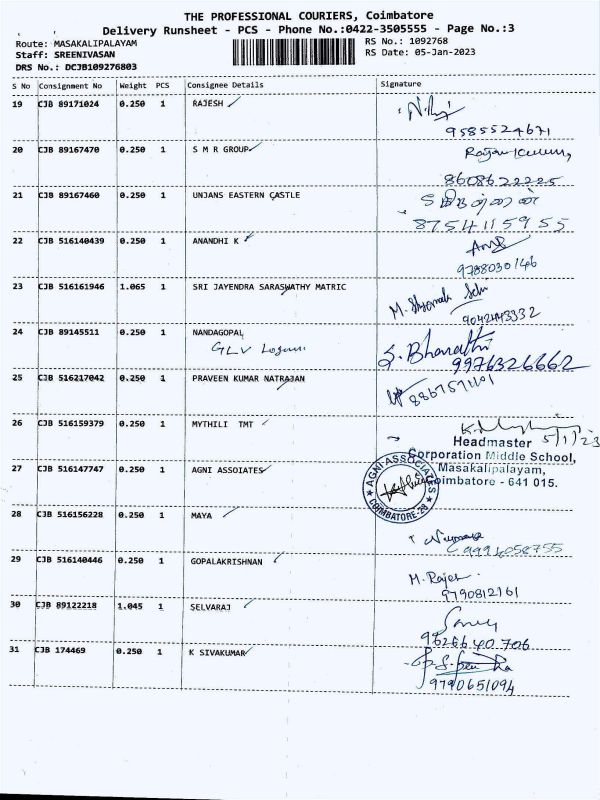 THE PROFESSIONAL COURIERS, Coimbatore
Delivery Runsheet - PCS - Phone No.:0422-3505555 - Page No.:3
Route: MASAKALIPALAYAM RS No.: 1092768
Staff: SREENIVASAN RS Date: 05-Jan-2023
DRS No.: DCJB109276803
S No Consignment No Weight PCS Consignee Details Signature
19 CJB 89171024 0.250 1 RAJESH
9585524671
20 CJB 89167470 0.250 1 S M R GROUP
8608622225
21 CJB 89167460 0.250 1 UNJANS EASTERN CASTLE
8754115955
22 CJB 516140439 0.250 1 ANANDHI K
9788030146
23 CJB 516161946 1.065 1 SRI JAYENDRA SARASWATHY MATRIC
9042443332
24 CJB 89145511 0.250 1 NANDAGOPAL
GLV S. Bharathi
9976326662
25 CJB 516217042 0.250 1 PRAVEEN KUMAR NATRAJAN
26 CJB 516159379 0.250 1 MYTHILI TMT
5/1/23
Headmaster
Corporation Middle School,
Masakalipalayam,
Coimbatore - 641 015.
27 CJB 516147747 0.250 1 AGNI ASSOIATES
AGNI ASSOCIATES
COIMBATORE-28
28 CJB 516156228 0.250 1 MAYA
9994058755
29 CJB 516140446 0.250 1 GOPALAKRISHNAN
M. Rajes
9790812161
30 CJB 89122218 1.045 1 SELVARAJ
9626640706
31 CJB 174469 0.250 1 K SIVAKUMAR
9790651094